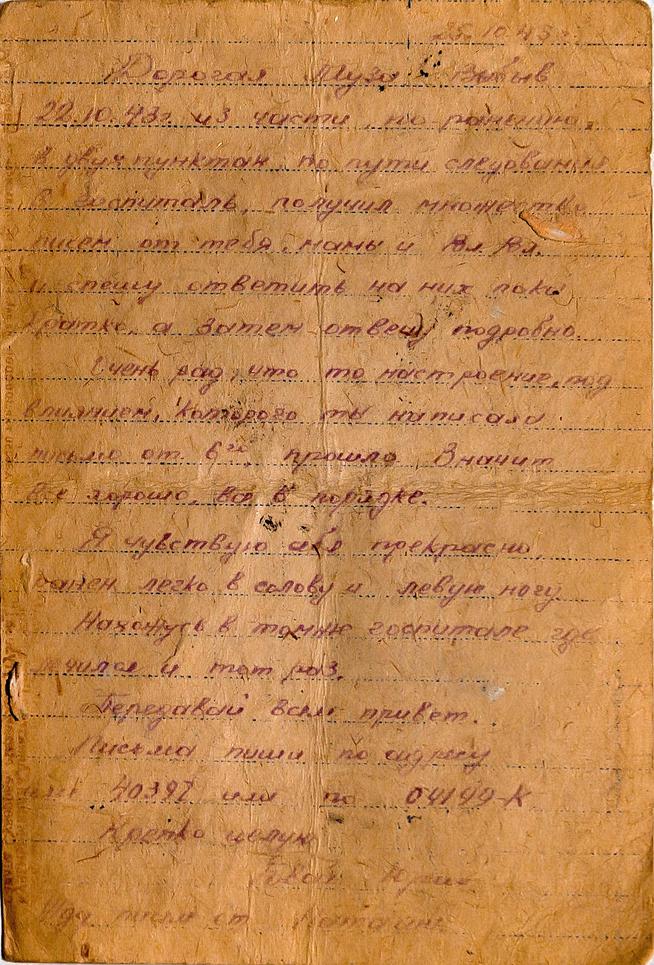 25.10.43 г.
Дорогая Муза. Выбыв
22.10.43г из части по ранению,
в двух пунктах по пути следования
в госпиталь, получил множество
писем от тебя, мамы и Вл. Вл.
и спешу ответить на них пока
кратко, а затем отвечу подробно.
Очень рад, что то настроение, под
влиянием, которого ты написала
письмо от 6го, прошло. Значит
все хорошо, все в порядке.
Я чувствую себя прекрасно
ранен легко в голову и левую ногу
Нахожусь в том же госпитале где
лечился и тот раз.
Передавай всем привет.
Письма пиши по адресу
40392 или по 04149-К
Крепко целую
Твой Юрий
Жду письма от